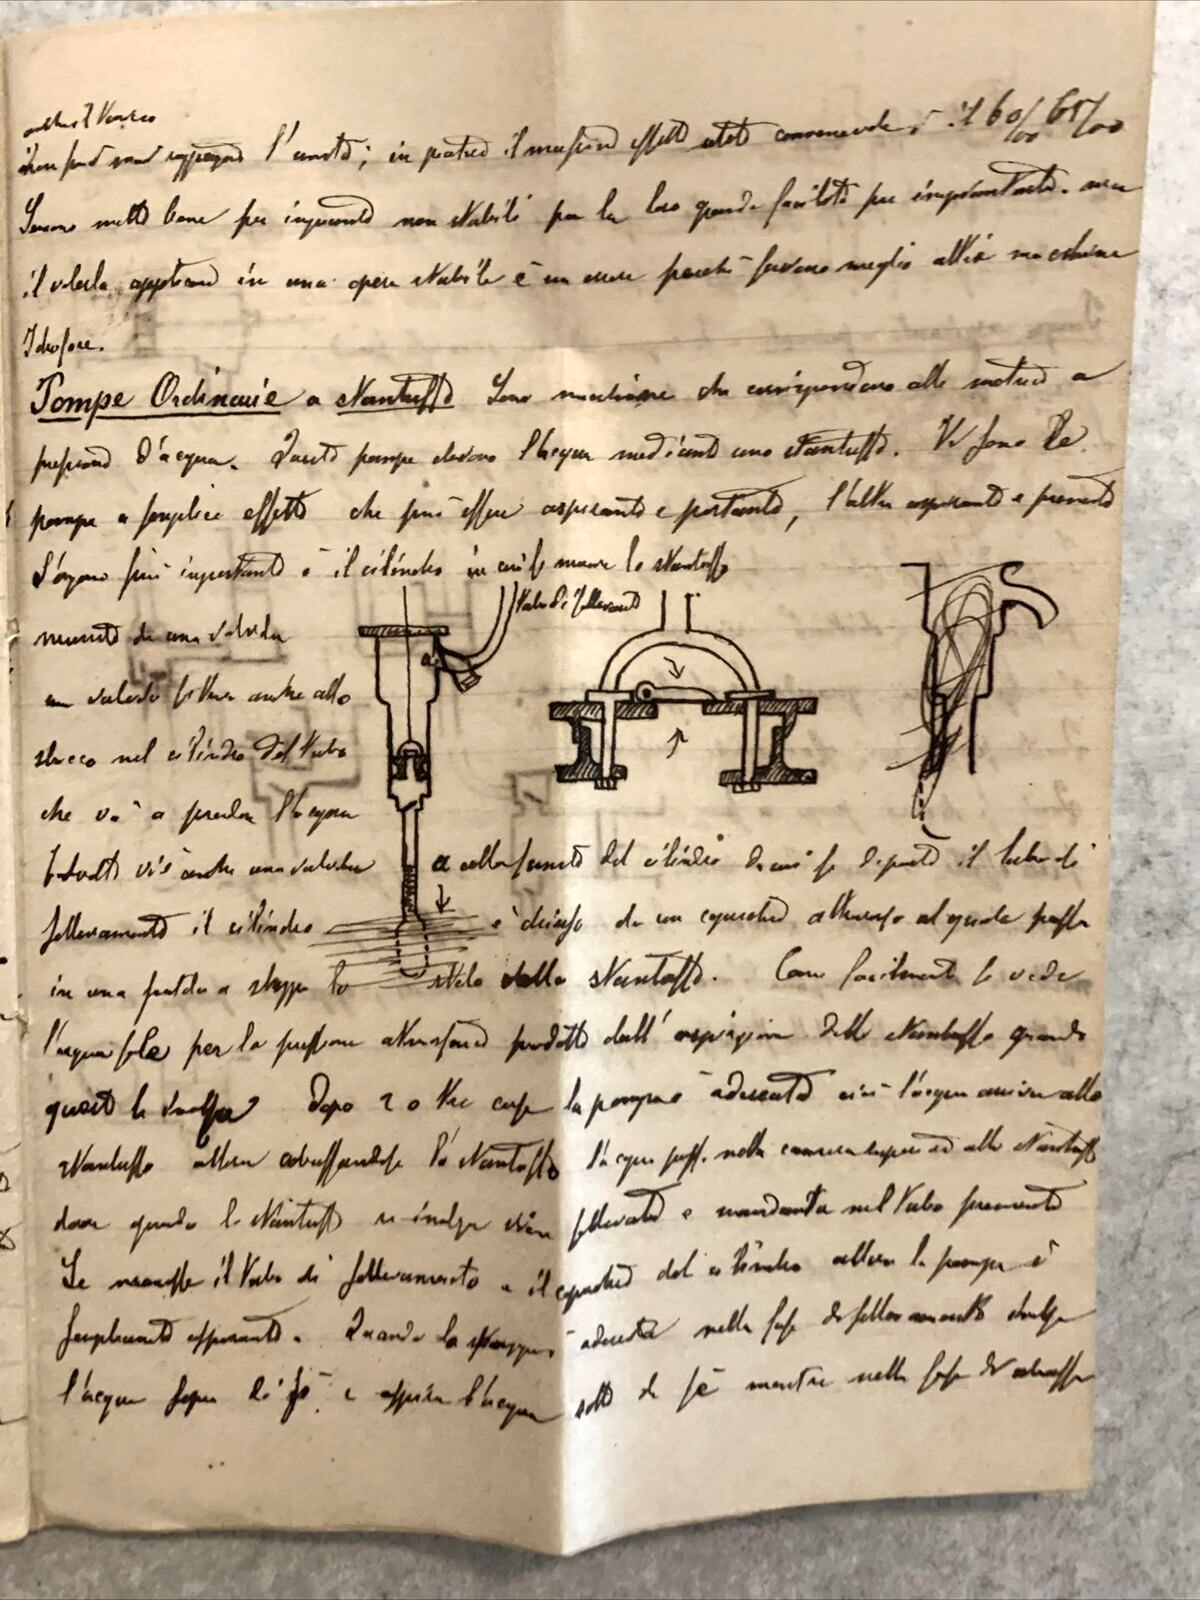 l'unità; in pratica il massimo effetto utile conveniente è il 60/00 65/00
Servono molto bene per impianti non stabili per la loro grande facilità per impiantarle. ma
il volerle applicare in una opera stabile è un errore perchè servono meglio altre macchine
Idrofore.
Pompe Ordinarie a Stantuffo Sono macchine che corrispondono alle motrici a
pressione d'acqua. Queste pompe elevano l'acqua mediante uno stantuffo. Vi sono le
pompe a semplice effetto che può essere aspirante e portante, l'altra aspirante e premente
L'organo più importante è il cilindro in cui si muove lo stantuffo
Tubo di sollevamento
munito di una valvola
a
un valvola anche allo
sbocco nel cilindro del tubo
che va a prender l'acqua
vi è anche una valvola a alla sommità del cilindro da cui si diparte il tubo di
sollevamento il cilindro è chiuso da un coperchio attraverso al quale passa
in una scatola a stoppa lo stelo dello stantuffo. Come facilmente si vede
l'acqua sale per la pressione atmosferica prodotta dall'aspirazione dello stantuffo quando
questo Dopo 2 o tre corse la pompa è adescata cioè l'acqua arriva allo
stantuffo allora abbassandosi lo stantuffo l'acqua passa nella camera superiore allo stantuffo
dove quando lo stantuffo si innalza viene sollevata e mandata nel tubo premente
Se mancasse il tubo di sollevamento e il coperchio del cilindro allora la pompa è
semplicemente aspirante. Quando la pompa è adescata nella fase di sollevamento
l'acqua sopra di sè e aspira l'acqua sotto di sè mentre nella fase di